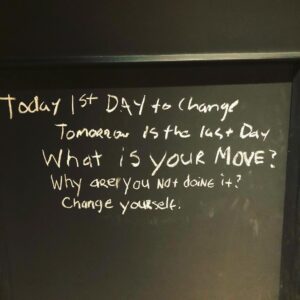 Today 1st DAY to Change
Tomorrow is the last Day
What is youR MOVE?
Why are you Not doine it?
Change yourself.